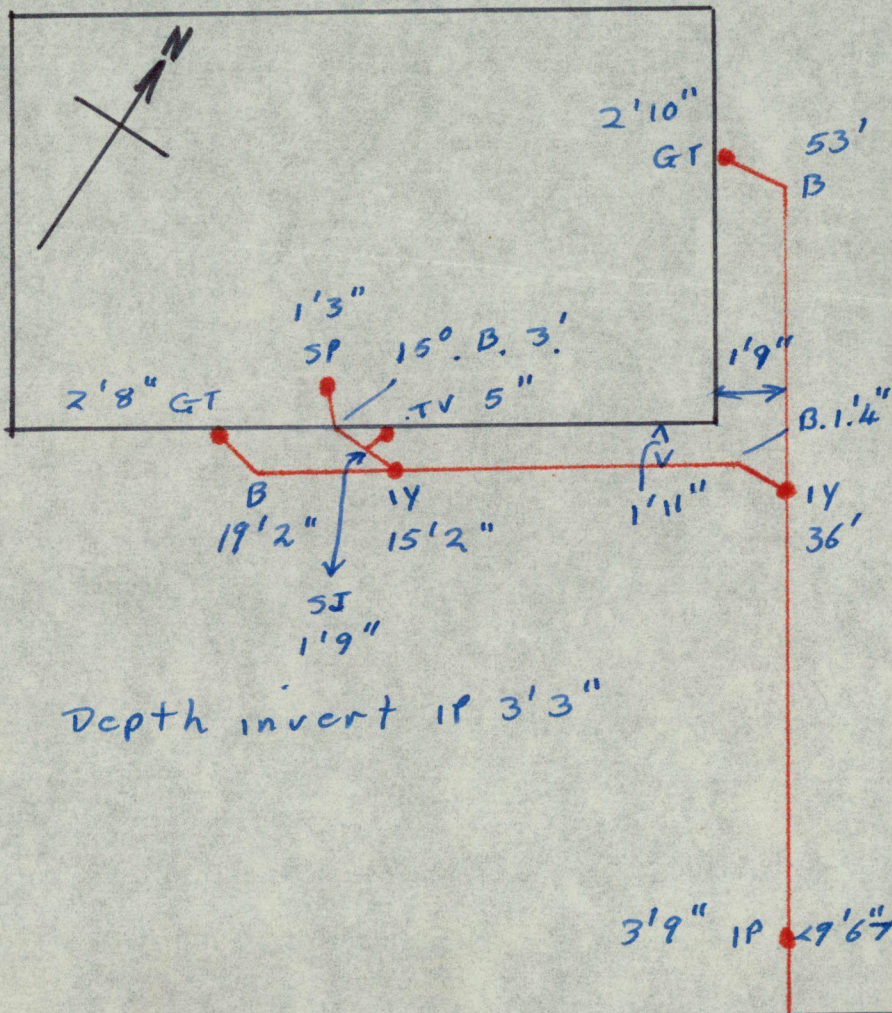 N
2'10"
GT
53'
B
1'3"
SP
15°. B. 3.'
2'8" GT
.TV 5"
1'9"
B.1.'4"
B
19'2"
1Y
15'2"
1'11"
1Y
36'
SJ
1'9"
Depth invert 1P 3'3"
3'9" 1P
<9'6"7